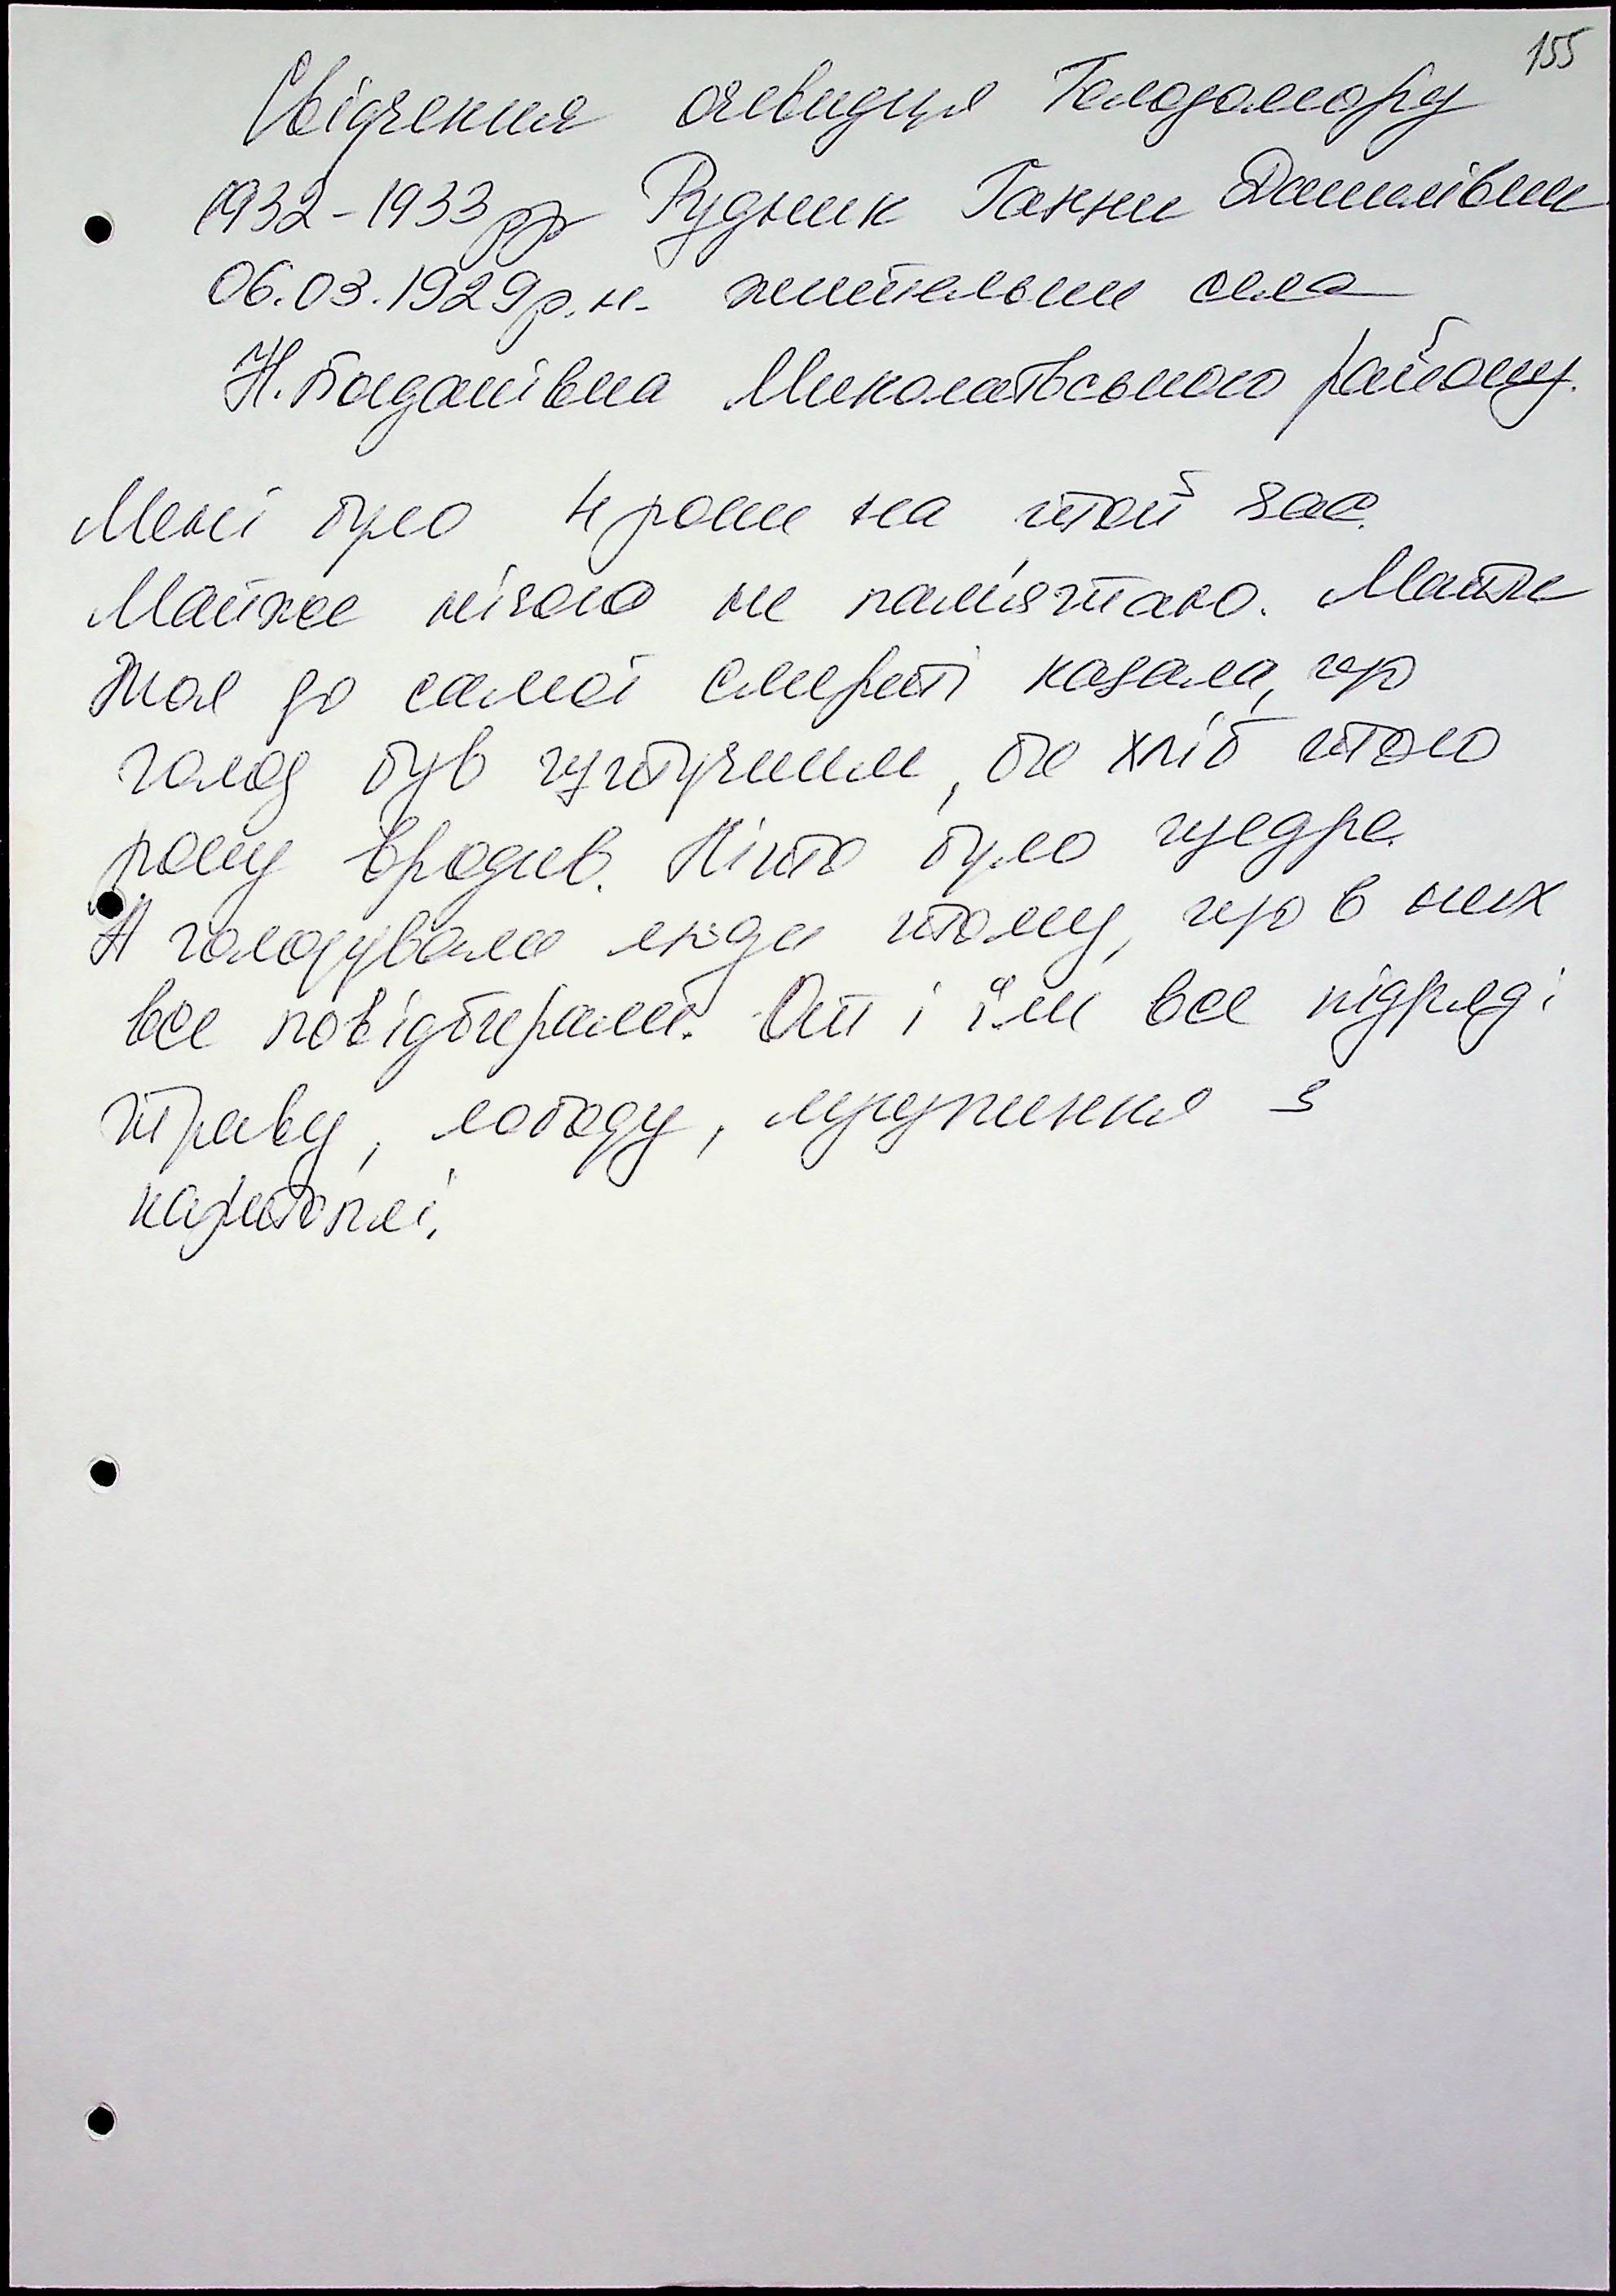 155
Свідчення очевидця Голодомору
1932-1933 рр Рудник Ганни Данилівни
06.03.1929 р.н. жительки села
Н. Богданівка Миколаївського району.
Мені було 4 роки на той час.
Майже нічого не пам'ятаю. Мати
моя до самої смерті казала, що
голод був штучним, бо хліб того
року вродив. Літо було щедре.
А голодували люди тому, що в них
все повідбирали. От і їли все підряд:
траву, лободу, лушпиння з
картоплі.